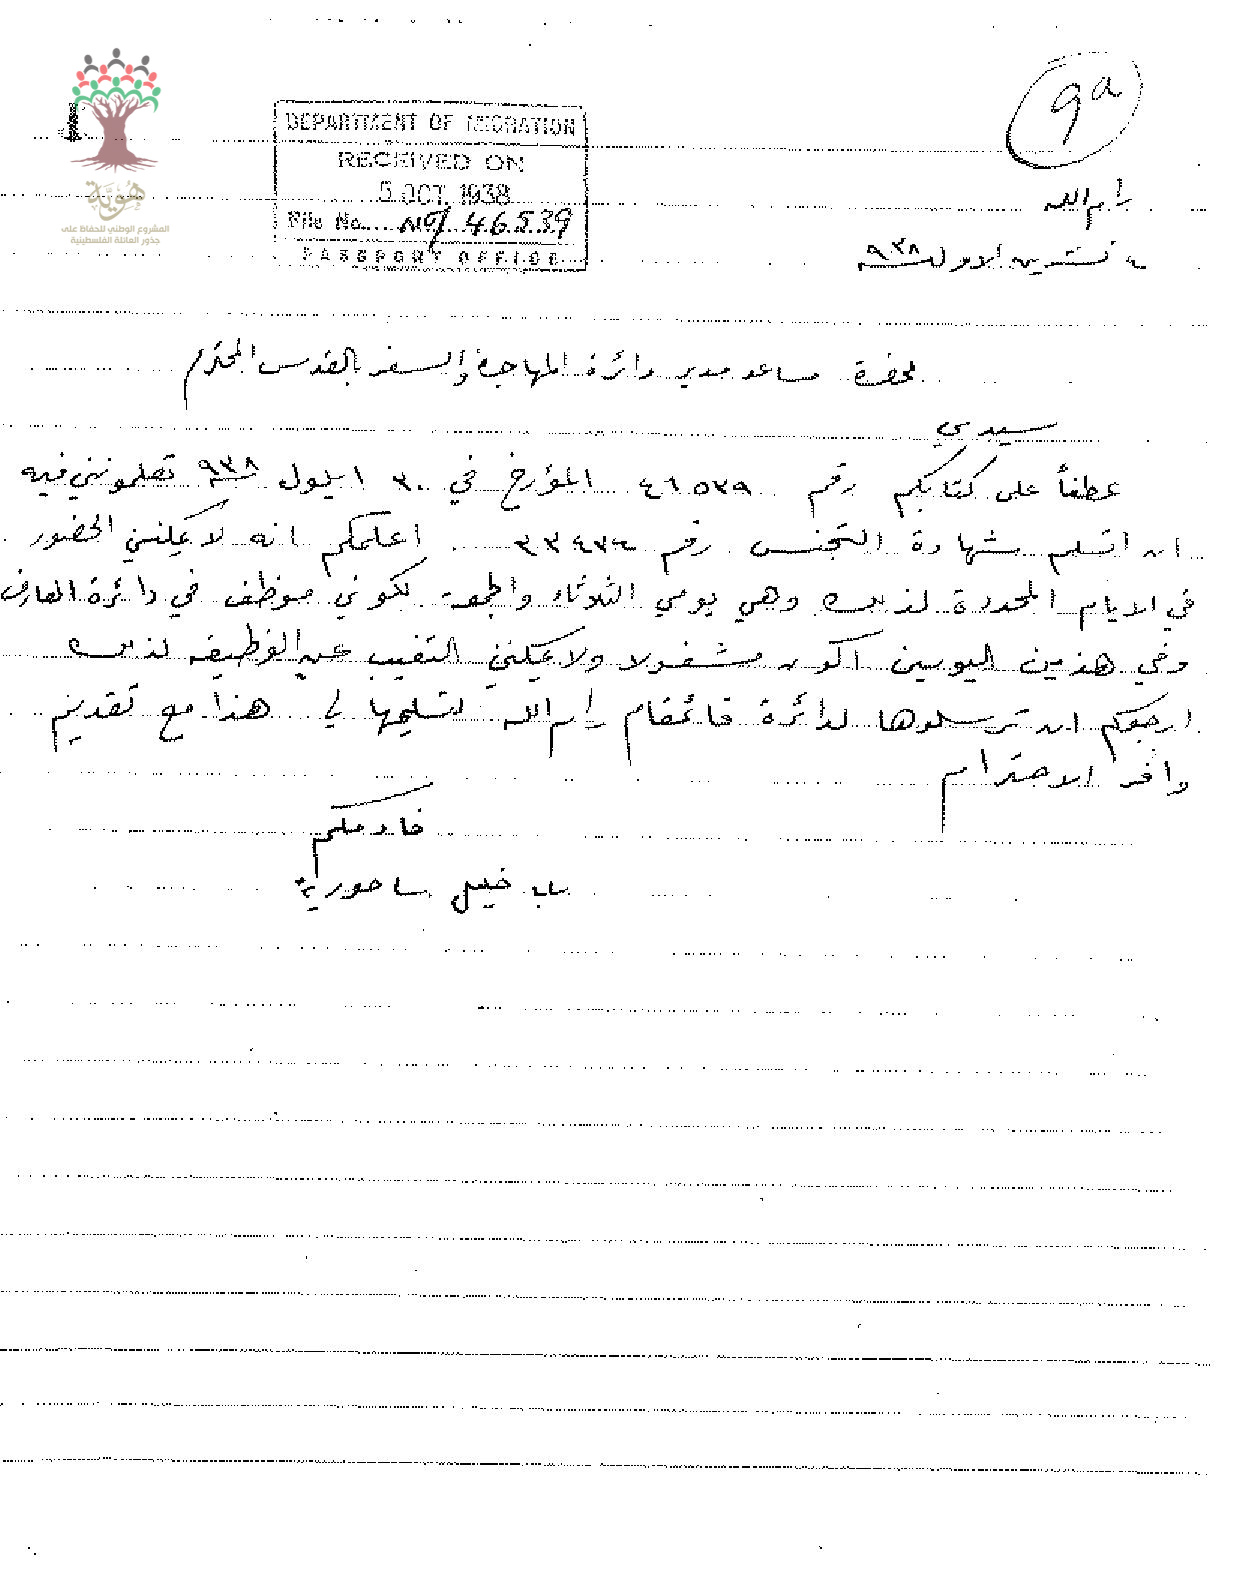 9a
DEPARTMENT OF MIGRATION
RECEIVED ON
5 OCT 1938
File No.... 46539
PASSPORT OFFICE
هُوِيَّة
المشروع الوطني للحفاظ على
جذور العائلة الفلسطينية
رام الله
٤ تشرين الاول سنة ٩٣٨
لحضرة مساعد مدير دائرة المهاجرة والسفر بالقدس المحترم
سيدي
عطفاً على كتابكم رقم ٤٦٥٣٩ المؤرخ في ٣٠ ايلول سنة ٩٣٨ تعلمونني فيه
ان اتسلم شهادة التجنس رقم ٣٣٤٣٤ اعلمكم انه لا يمكنني الحضور
في الايام المحددة لذلك وهي يومي الثلاثاء والجمعة لكوني موظف في دائرة المعارف
وفي هذين اليومين اكون مشغولا ولا يمكنني التغيب عن الوظيفه لذلك
ارجوكم ان ترسلوها لدائرة قائمقام رام الله لتسليمها لي هذا مع تقديم
وافر الاحترام
خادمكم
خليل ساحورية